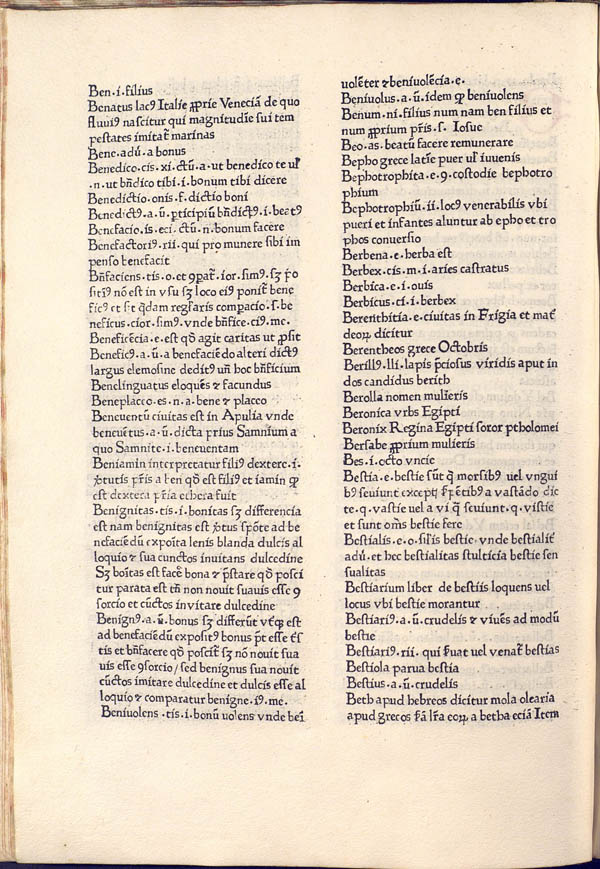 Ben.i.filius
Benatus lacꝰ Italie ꝓprie Veneciā de quo
fluuiꝰ nascitur qui magnitudīe sui tem
pestates imitat᷑ marinas
Bene.adū.a bonus
Benedico.cis.xi.ctū.a.ut benedico te uł
.n.ut bn̄dico tibi.i.bonum tibi dicere
Benedictio.onis.f.dictio boni
Benedictꝰ.a.ū.pticipiū bn̄dictꝰ.i.beatꝰ
Benefacio.is.eci.ctū.n.bonum facere
Benefactoriꝰ.rii.qui pro munere sibi im
penso benefacit
Bn̄faciens.tis.o.et ꝯpat᷑.ior.simꝰ.sꝫ ṗo
sitiꝰ nō est in vsu sꝫ loco eiꝰ ponit᷑ bene
ficꝰ et sit qdam regl̄aris compacio.s.be
neficus.cior.simꝰ.vnde bn̄fice.ciꝰ.me.
Beneficēcia.e.est qđ agit caritas ut ꝓsit
Beneficꝰ.a.ū.a benefaciēdo alteri dictꝰ
largus elemosine dedit᷑ un̄ hoc bn̄ficium
Benelinguatus eloquēs ⁊ facundus
Beneplaceo.es.n.a bene ⁊ placeo
Beneuentū ciuitas est in Apulia vnde
beneuētus.a.ū.dicta prius Samnium a
quo Samnite.i.beneuentam
Beniamin interpretatur filiꝰ dextere.i.
ꝟtutis pr̄is a ben qđ est filiꝰ et iamin qđ
est dextera pr̄ia eīhera fuit
Benignitas.tis.i.bonitas sꝫ differencia
est nam benignitas est ꝟtus spōte ad be
nefaciēdū expoīta lenis blanda dulcis al
loquio ⁊ sua cunctos inuitans dulcedine
Sꝫ boītas est facē bona ⁊ p̄stare qđ posci
tur parata est tn̄ non nouit suauis esse ꝯ
sorcio et cūctos invitare dulcedine
Benignꝰ.a.ū.bonus sꝫ differūt vtqꝫ est
ad benefaciēdū expositꝰ bonus pt esse ēs
tis et bn̄facere qđ poscit᷑ sꝫ nō nouit sua
uis esse ꝯsorcio/sed benignus sua nouit
cūctos imitare dulcedine et dulcis esse al
loquio ⁊ comparatur benigne.iꝰ.me.
Beniuolens.tis.i.bonū uolens vnde beī
uolēter ⁊ beniuolēcia.e.
Beniuolus.a.ū.idem qđ beniuolens
Benum.ni.filius num nam ben filius et
num ꝓprium pr̄is.s.Iosue
Beo.as.beatū facere remunerare
Bepho grece latīe puer uł iuuenis
Bephotrophita.e.ꝯ.costodie bephotro
phium
Bephotrophiū.ii.locꝰ venerabilis vbi
pueri et infantes aluntur ab epho et tro
phos conuersio
Berbena.e.herba est
Berbex.cis.m.i.aries castratus
Berbica.e.i.ouis
Berbicus.ci.i.berbex
Berenthitia.e.ciuitas in Frigia et mat᷑
deoꝝ dicitur
Berentheos grece Octobris
Berillꝰ.lli.lapis p̄ciosus viridis aput in
dos candidus berith
Berolla nomen mulieris
Beronica vrbs Egipti
Beronix Regina Egipti soror ptholomei
Bersabe ꝓprium mulieris
Bes.i.octo vncie
Bestia.e.bestie sūt q̄ morsibꝰ uel vngui
bꝰ seuiunt exceptꝭ ẜpētibꝰ a vastādo dic
te.q.vastie uel a vi q̄ seuiunt.q.vistie
et sunt om̄s bestie fere
Bestialis.e.o.sil̄is bestie.vnde bestialit᷑
adū.et hec bestialitas stulticia bestie sen
sualitas
Bestiarium liber de bestiis loquens uel
locus vbi bestie morantur
Bestiariꝰ.a.ū.crudelis ⁊ viuēs ad modū
bestie
Bestiariꝰ.rii.qui ẜuat uel venat᷑ bestias
Bestiola parua bestia
Bestius.a.ū.crudelis
Beth apud hebreos dicitur mola olearia
apud grecos ẜa lr̄a eoꝝ a betha eciā Item